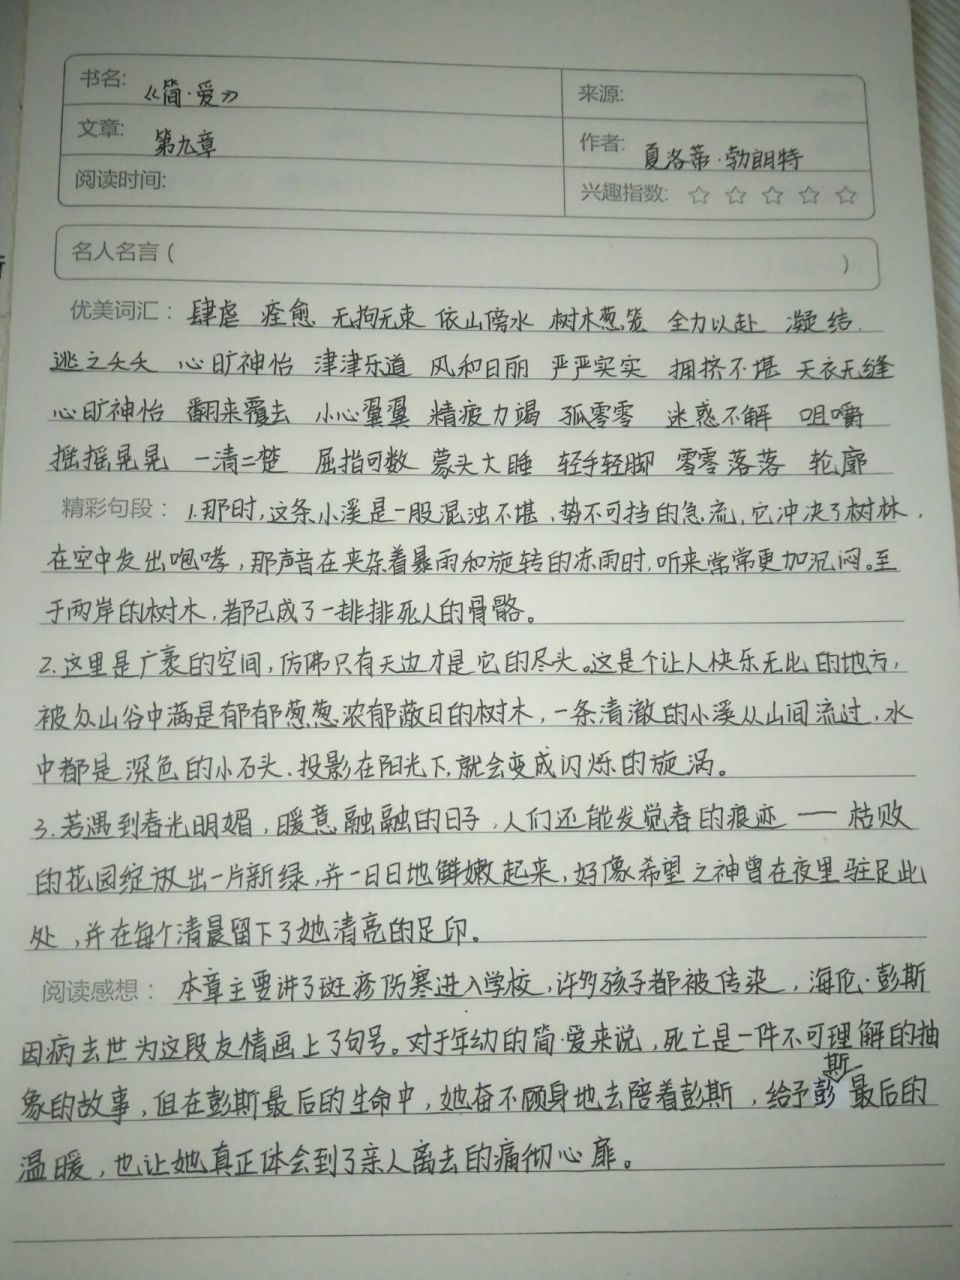 书名:《简·爱》 来源:
文章: 第九章 作者: 夏洛蒂·勃朗特
阅读时间: 兴趣指数: ☆ ☆ ☆ ☆ ☆
名人名言 ( )
优美词汇: 肆虐 痊愈 无拘无束 依山傍水 树木葱茏 全力以赴 凝结
逃之夭夭 心旷神怡 津津乐道 风和日丽 严严实实 拥挤不堪 天衣无缝
心旷神怡 翻来覆去 小心翼翼 精疲力竭 孤零零 迷惑不解 咀嚼
摇摇晃晃 一清二楚 屈指可数 蒙头大睡 轻手轻脚 零零落落 轮廓
精彩句段: 1.那时,这条小溪是一股混浊不堪、势不可挡的急流,它冲决了树林,
在空中发出咆哮,那声音在夹杂着暴雨和旋转的冻雨时,听来常常更加沉闷。至
于两岸的树木,都已成了一排排死人的骨骼。
2.这里是广袤的空间,仿佛只有天边才是它的尽头。这是个让人快乐无比的地方,
被众山谷中满是郁郁葱葱浓郁蔽日的树木,一条清澈的小溪从山间流过,水
中都是深色的小石头、投影在阳光下,就会变成闪烁的旋涡。
3.若遇到春光明媚,暖意融融的日子,人们还能发觉春的痕迹——枯败
的花园绽放出一片新绿,并一日日地鲜嫩起来,好像希望之神曾在夜里驻足此
处,并在每个清晨留下了她清亮的足印。
阅读感想: 本章主要讲了斑疹伤寒进入学校,许多孩子都被传染,海伦·彭斯
因病去世为这段友情画上了句号。对于年幼的简·爱来说,死亡是一件不可理解的抽
象的故事,但在彭斯最后的生命中,她奋不顾身地去陪着彭斯,给予彭斯最后的
温暖,也让她真正体会到了亲人离去的痛彻心扉。